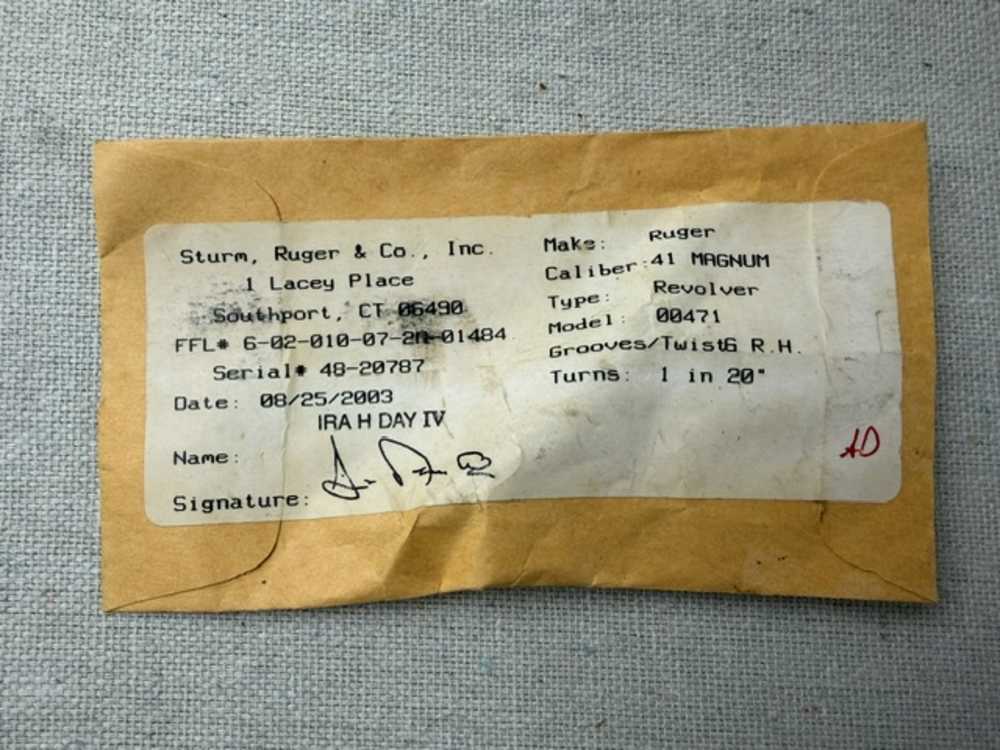 Sturm, Ruger & Co., Inc.
1 Lacey Place
Southport, CT 06490
FFL# 6-02-010-07-2M-01484
Serial# 48-20787
Date: 08/25/2003
IRA H DAY IV
Name:
Signature:
Make: Ruger
Caliber:41 MAGNUM
Type: Revolver
Model: 00471
Grooves/Twist6 R.H.
Turns: 1 in 20"
AD